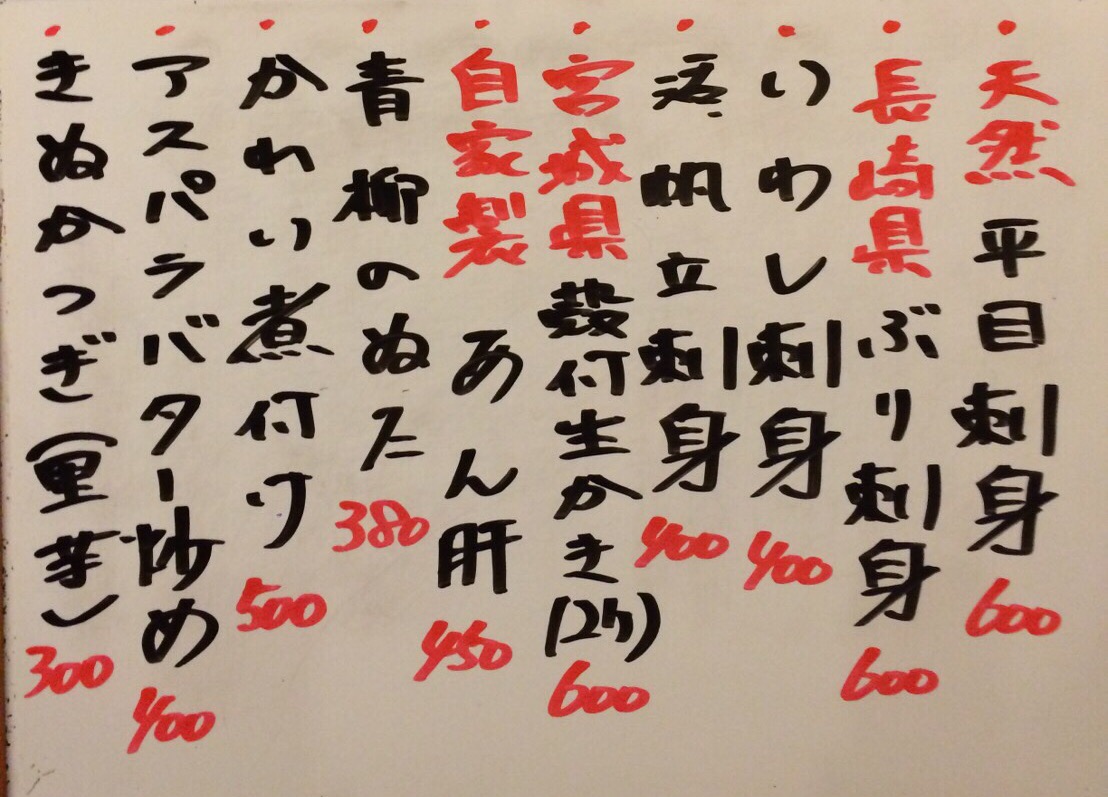 天然 平目刺身 600
長崎県 ぶり刺身 600
いわし刺身 400
活帆立刺身 400
宮城県 殻付生かき(2ケ) 600
自家製 あん肝 450
青柳のぬた 380
かれい煮付け 500
アスパラバター炒め 400
きぬかつぎ(里芋) 300